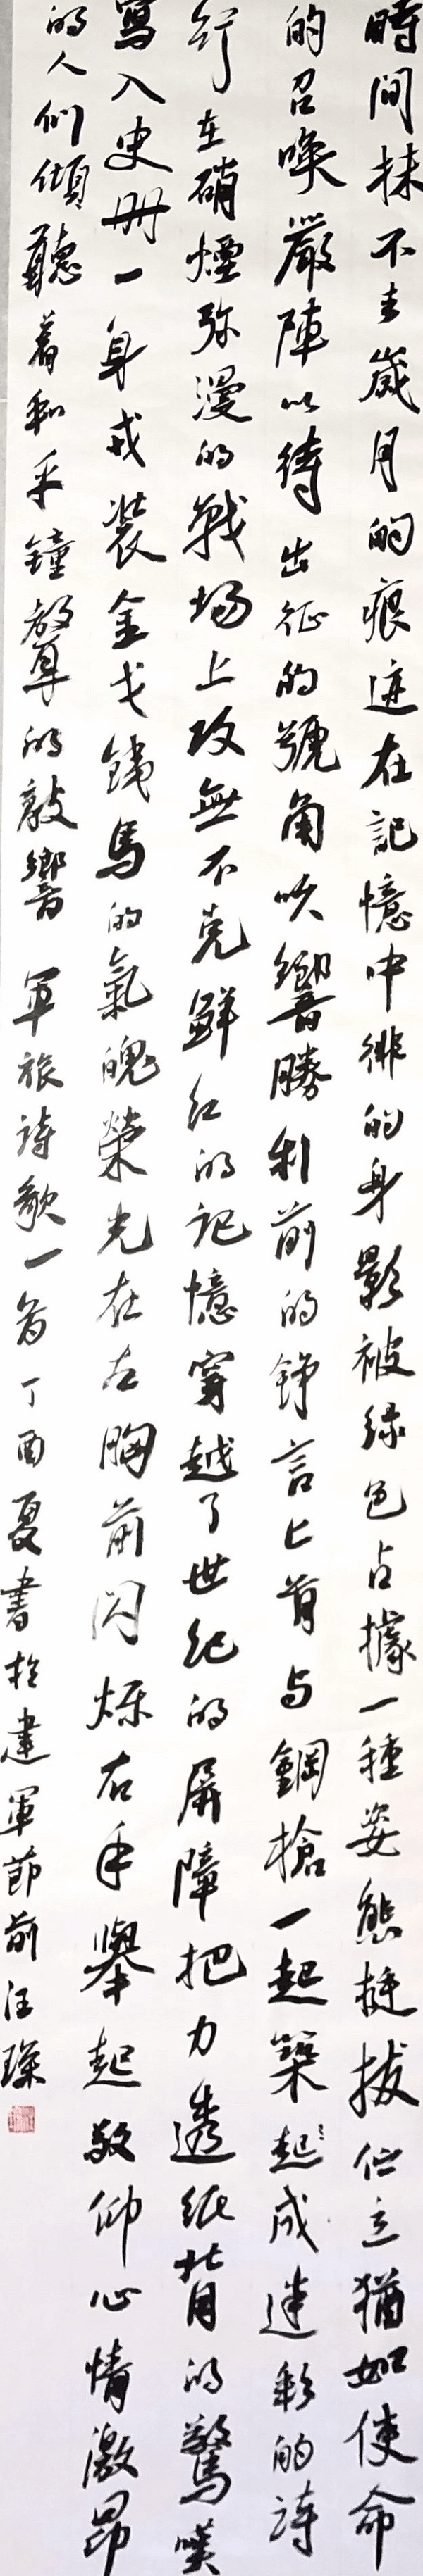 時間抹不去歲月的痕迹在記憶中徘的身影被綠色占據一種姿態挺拔伫立猶如使命
的召喚嚴陣以待出征的號角吹響勝利前的錚言匕首与鋼槍一起築起成迷彩的詩
行在硝煙弥漫的戰場上攻無不克鮮红的记憶穿越了世纪的屏障把力透纸背的驚嘆
寫入史册一身戎裝金戈鐵馬的氣魄榮光在左胸前闪烁右手舉起敬仰心情激昂
的人们傾聽着和平鐘聲的敲響 軍旅詩歌一首丁酉夏書於建軍節前汪璨